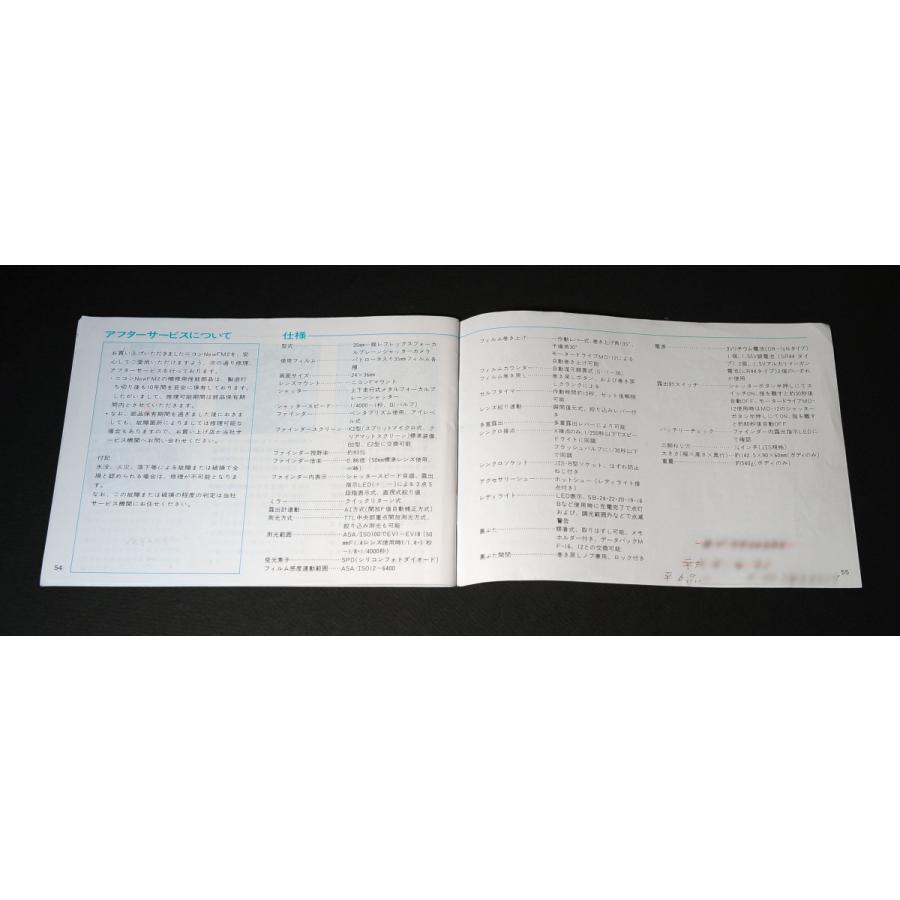 アフターサービスについて
お買い上げいただきましたニコンNewFM2を、安
心してご愛用いただけますよう、次の通り修理、
アフターサービスを行っております。
・ニコンNewFM2の補修用性能部品は、製造打
ち切り後も10年間を目安に保有しております。
したがいまして、修理可能期間は部品保有期
間内とさせていただきます。
・なお、部品保有期間を過ぎました後におきま
しても、故障箇所によりましては修理可能な
場合もありますので、お買い上げ店か当社サ
ービス機関へお問い合わせください。
付記
水没、火災、落下等による故障または破損で全
損と認められる場合は、修理が不可能となりま
す。
なお、この故障または破損の程度の判定は当社
サービス機関にお任せください。
54
仕様
型式 35mm一眼レフレックスフォーカ
ルプレーンシャッターカメラ
使用フィルム パトローネ入り35mmフィルム各
種
画面サイズ 24×36mm
レンズマウント ニコンFマウント
シャッター 上下走行式メタルフォーカルプ
レーンシャッター
シャッタースピード 1/4000〜1秒、B(バルブ)
ファインダー ペンタプリズム使用、アイレベ
ル式
ファインダースクリーン K2型(スプリットマイクロ式、ク
リアマットスクリーン)標準装備、
B2型、E2型に交換可能
ファインダー視野率 約93%
ファインダー倍率 0.86倍(50mm標準レンズ使用、
∞時)
ファインダー内表示 シャッタースピード目盛、露出
指示LED(+○−)による3点5
段指表示式、直視式絞り値
ミラー クイックリターン式
露出計連動 AI方式(開放F値自動補正方式)
測光方式 TTL中央部重点開放測光方式、
絞り込み測光も可能
測光範囲 ASA/ISO100でEV1〜EV18(50
mmF1.4レンズ使用時f/1.4・1秒
〜f/8・1/4000秒)
受光素子 SPD(シリコンフォトダイオード)
フィルム感度連動範囲 ASA/ISO12〜6400
フィルム巻き上げ 一作動レバー式、巻き上げ角135°、
予備角30°
モータードライブMD-12による
自動巻き上げ可能
フィルムカウンター 自動復元順算式(S・1〜36)
フィルム巻き戻し 巻き戻しボタン、および巻き戻
しクランクによる
セルフタイマー 作動時間約10秒、セット後解除
可能
レンズ絞り連動 瞬間復元式、絞り込みレバー付
き
多重露出 多重露出レバーにより可能
シンクロ接点 X接点のみ、1/250秒以下でスピー
ドライトに同調
フラッシュバルブに1/30秒以下
で同調
シンクロソケット JIS-B型ソケット、はずれ防止
ねじ付き
アクセサリーシュー ホットシュー(レディライト接
点付き)
レディライト LED表示、SB-24・22・20・19・16
Bなど使用時に充電完了で点灯
および、調光範囲外などで点滅
警告
裏ぶた 蝶番式、取りはずし可能、メモ
ホルダー付き、データバックM
F-16、12との交換可能
裏ぶた開閉 巻き戻しノブ兼用、ロック付き
電源 3Vリチウム電池(CR-1/3Nタイプ)
1個、1.55V銀電池(SR44タイ
プ)2個、1.5Vアルカリマンガン
電池(LR44タイプ)2個のいずれ
か使用
露出計スイッチ シャッターボタン半押しにてス
イッチON、指を離すと約30秒後
自動OFF、モータードライブMD-
12使用時はMD-12のシャッター
ボタン半押しにてON、指を離す
と約80秒後自動OFF
バッテリーチェック ファインダー内露出指示LEDに
て確認
三脚ねじ穴 1/4インチ(JIS規格)
大きさ(幅×高さ×奥行) 約142.5×90×60mm(ボディのみ)
重量 約540g(ボディのみ)
55